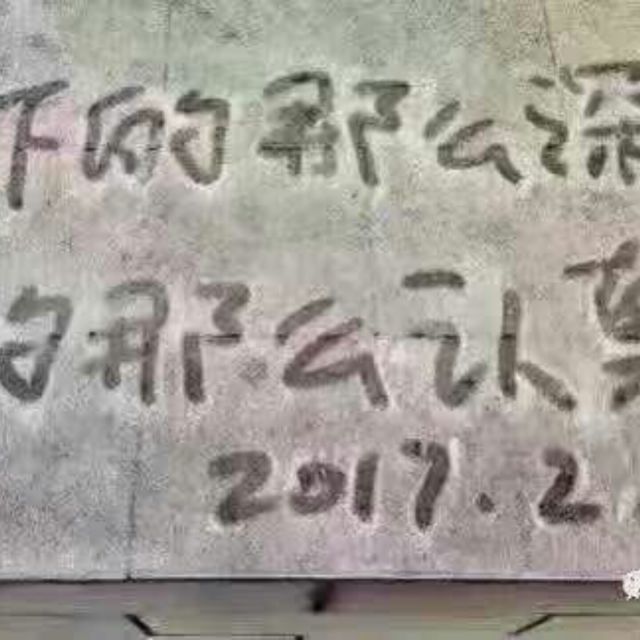 下的那么深
的那么认真
2017.2